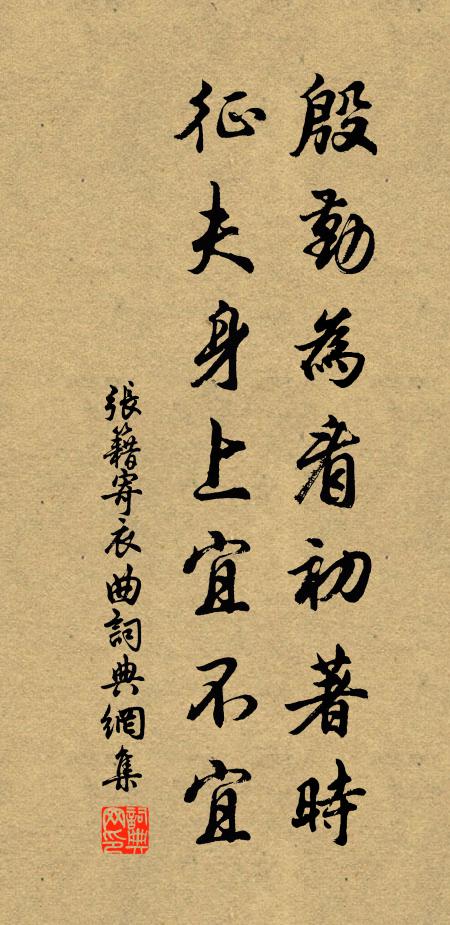 殷勤為看初著時
征夫身上宜不宜
張籍寄衣曲詞典網集
詞典网印